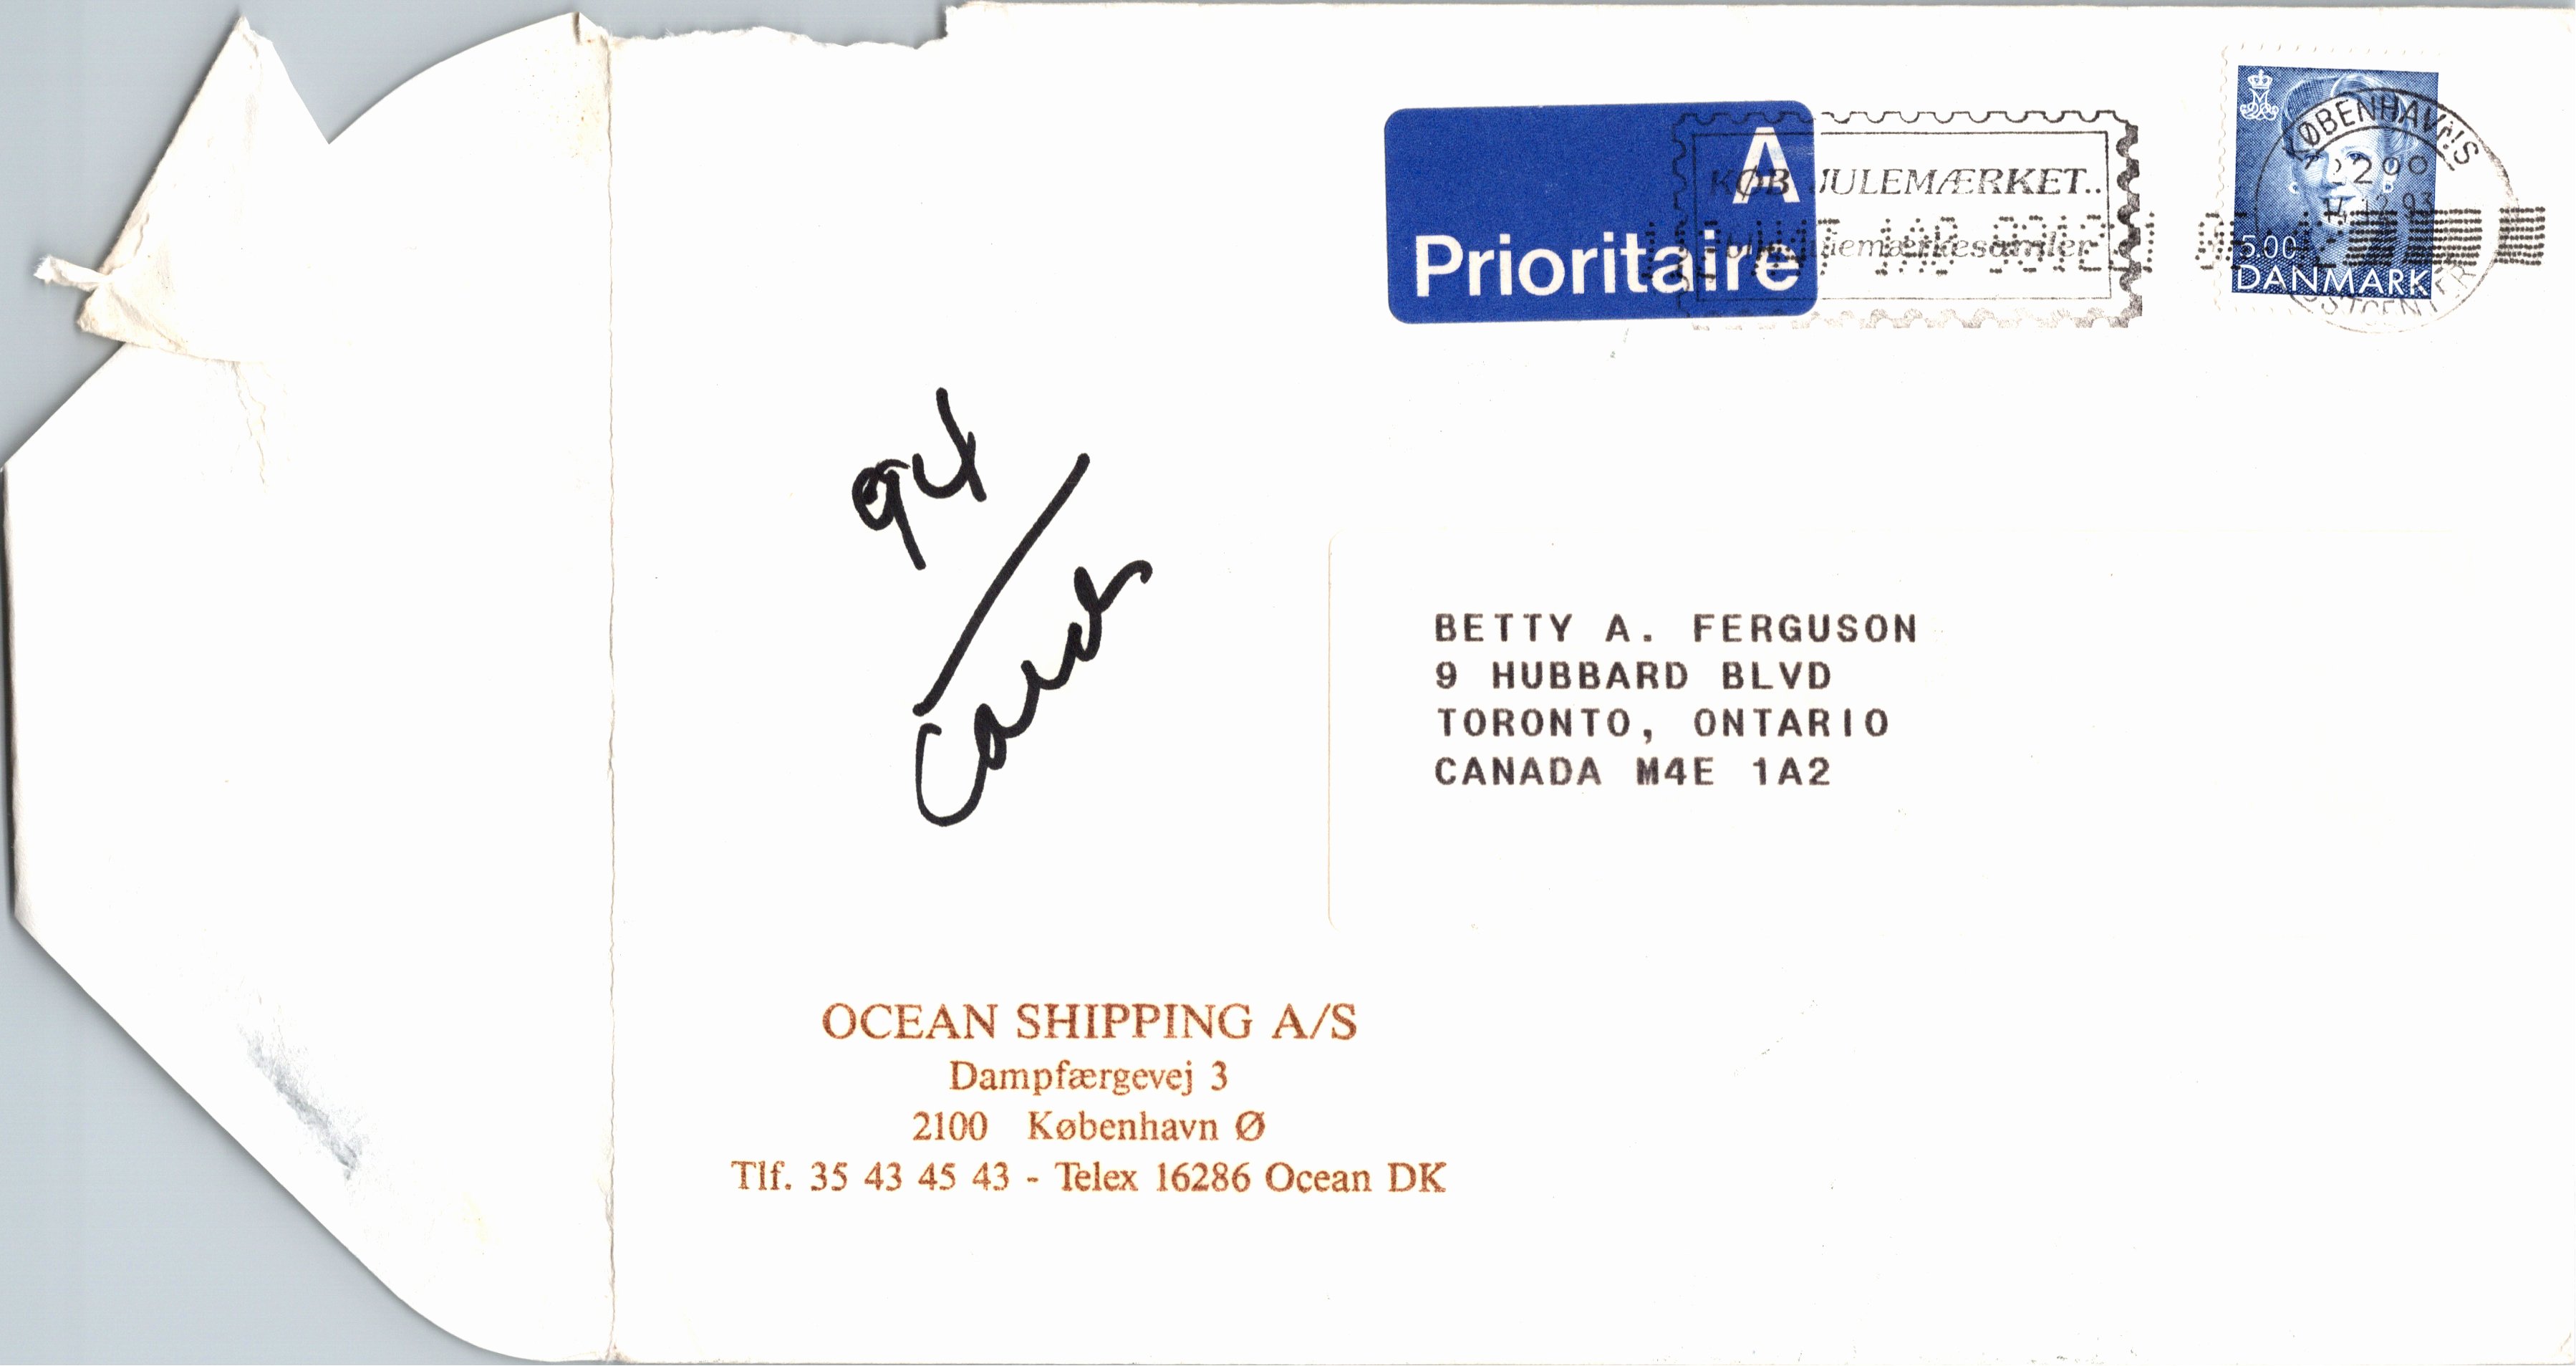 A
Prioritaire
KØB JULEMÆRKET..
bliv julemærkesamler
KØBENHAVNS
2200
17.12.93
POSTCENTER
5.00
DANMARK
94
Cards
BETTY A. FERGUSON
9 HUBBARD BLVD
TORONTO, ONTARIO
CANADA M4E 1A2
OCEAN SHIPPING A/S
Dampfærgevej 3
2100 København Ø
Tlf. 35 43 45 43 - Telex 16286 Ocean DK